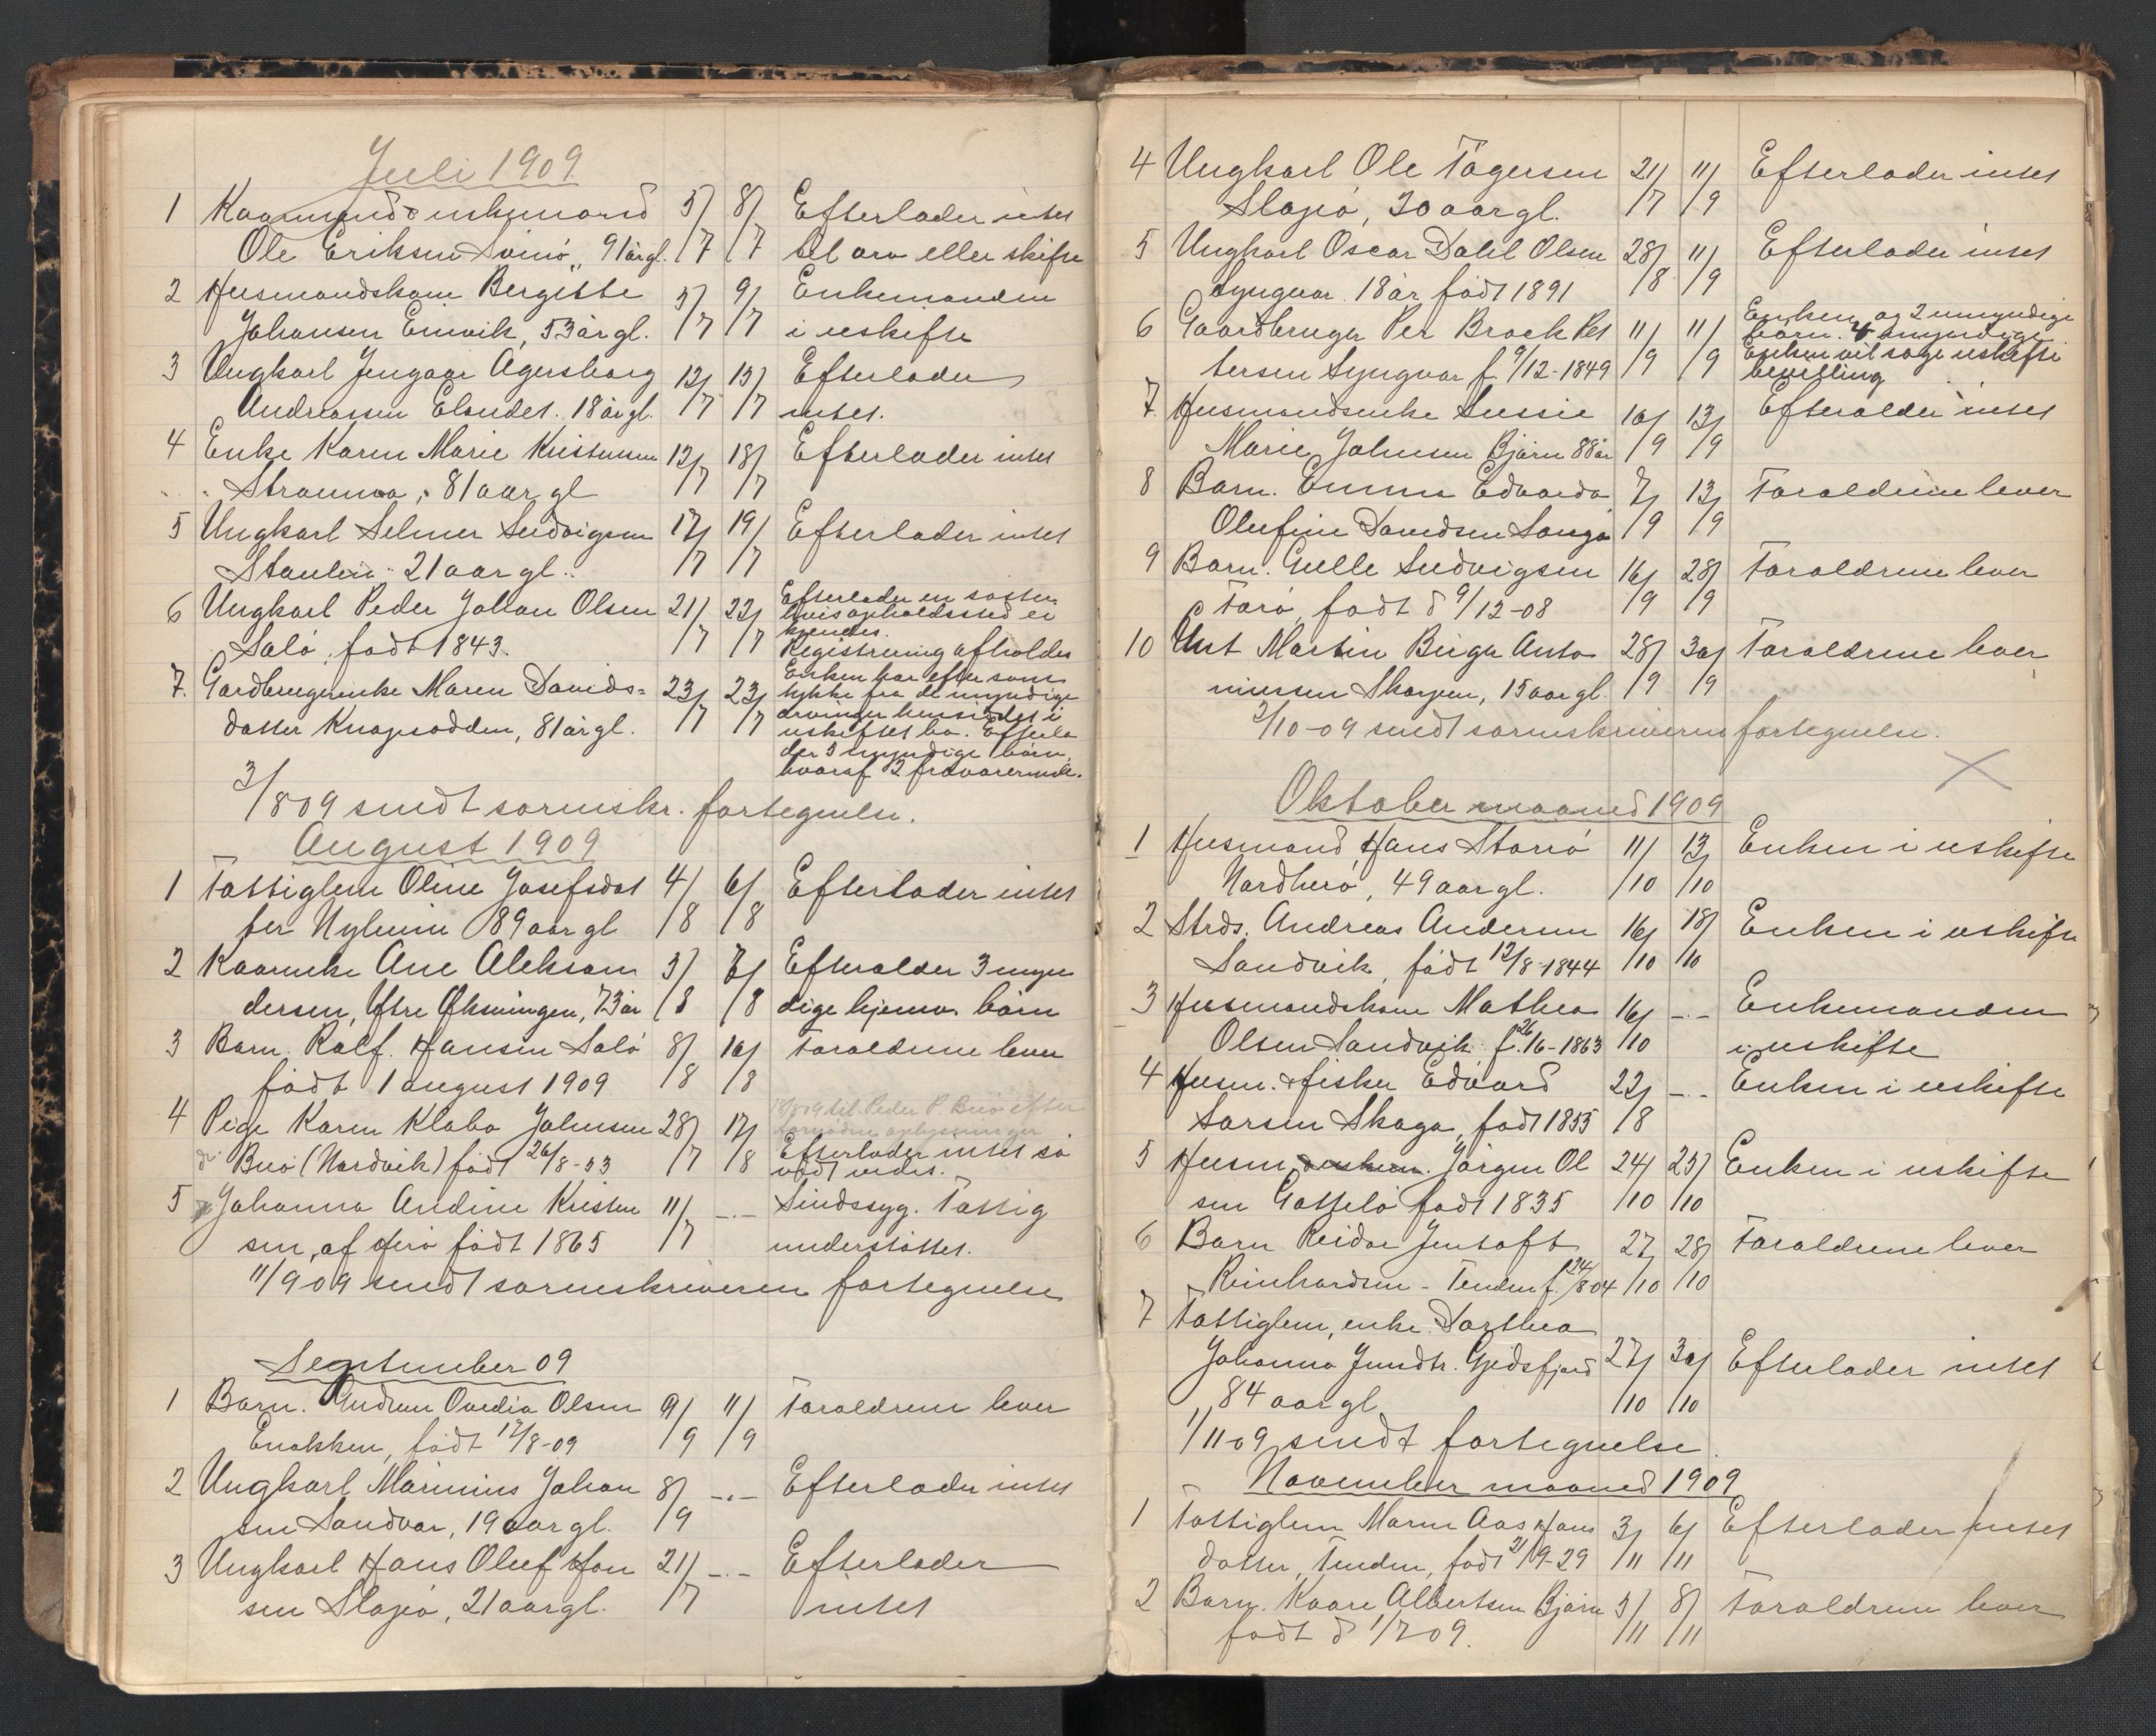 Juli 1909
1 Kaarmand enkemand 5/7 8/7 Efterlader intet
Ole Eriksen 91 årgl. til arv eller skifte
2 Husmandskone Bergitte 5/7 9/7 Enkemanden
Johansen Einvik, 53 årgl. i uskifte
3 Ungkarl Jengaar Agersborg 12/7 13/7 Efterlader
Andreassen Elandet. 18 årgl. intet.
4 Enke Karen Marie Kristensen 12/7 18/7 Efterlader intet
81 aar gl
5 Ungkarl Selmer Ludvigsen 17/7 19/7 Efterlader intet
Staulen 21 aar gl.
6 Ungkarl Peder Johan Olsen 21/7 22/7 Efterlader en søster
hvis opholdssted ei
kjendes.
Salö, født 1843. Registrering afholdes
7. Gardbrugerenke Maren Davids= 23/7 23/7 Enken har efter sam
tykke fra de myndige
arvinger hensiddet i
datter Knapsodden, 81 årgl. uskiftet bo. Efterla
der 5 myndige börn,
hvoraf 2 fraværende.
3/8 09 sendt sorenskr. fortegnelse.
August 1909
1 Fattiglem Oline Josefsdat 4/8 6/8 Efterlader intet
ter 89 aar gl
2 Kaarenke Ane Aleksan 3/8 7/8 Efteralder 3 myn
dersen, Øksningen, 73 år dige hjemv. börn
3 Barn. Ralf. Hansen Salö 8/8 10/8 Foraldrene lever
født 1 august 1909
4 Pige Karen Klaba Johnsen 28/7 17/8 til Peder P. Buö efter
oplysninger
Efterlader intet så
Buö (Nordvik) født 26/8-53 vidt vides.
5 Johanna Andine Kristen 11/7 -.- Sindssyg. Fattig
sen, af født 1865 understöttet.
11/9 09 sendt sorenskriveren fortegnelse
September 09
1 Barn. Gudrun Ovedia Olsen 9/9 11/9 Foraldrene lever
født 17/8-09
2 Ungkarl Marinius Johan 8/9 -.- Efterlader intet
sen Sandvær, 19 aar gl.
3 Ungkarl Hans Oluf Han 21/7 -.- Efterlader
sen Slapö, 21 aargl. intet
4 Ungkarl Ole Tøgersen 21/7 11/9 Efterlader intet
Slapö, 20 aar gl.
5 Ungkarl Oscar Dahl Olsen 28/8 11/9 Efterlader intet
Lyngvær 18 år født 1891
6 Gaardbruger Per Brock Pet 11/9 11/9 Enken og 2 umyndige
börn. 4 myndige
tersen Lyngvær f. 9/12-1849 Enken vil søge uskifte
bevilling
7. Husmandsenke Sussie 10/9 13/9 Efteralder intet
Marie Johnsen Bjørn 88 år
8 Barn. Emma Edvarda 7/9 13/9 Foraldrene lever
Olufine Davidsen
9 Barn. Ludvigsen 16/9 28/9 Foraldrene lever
Farö, født d 9/12-08
10 Gut Martin Birger Anto 28/9 30/9 Foraldrene lever
niussen Skarpen, 15 aar gl.
2/10-09 sendt sorenskriveren fortegnelse.
Oktober maaned 1909
1 Husmand Hans Storrö 11/10 13/10 Enken i uskifte
Nordherö, 49 aar gl.
2 Strds. Andreas Andersen 16/10 18/10 Enken i uskifte
Sandvik, født 12/8-1844
3 Husmandskone Mathea 16/10 -.- Enkemanden
Olsen Sandvik f. 26/6-1863 i uskifte
4 Husm. & fisker Edvard 22/8 -.- Enken i uskifte
Larsen Skaga, født 1855
5 Husm. Jørgen Ol 24/10 25/10 Enken i uskifte
sen født 1835
6 Barn Reidar Jentoft 27/10 28/10 Foraldrene lever
Reinhardsen - Tenden f. 24/8 04
7 Fattiglem, enke. Dorthea
Johanna Jensdtr. Gjedsfjord 27/10 30/10 Efterlader intet
84 aar gl
1/11 09 sendt fortegnelse.
November maaned 1909
1 Fattiglem Maren Aas Hans 3/11 6/11 Efterlader intet
datter, Tenden, født 21/9-29
2 Barn. Kaare Albertsen Bjørn 5/11 8/11 Foraldrene lever
født d 1/7 09.